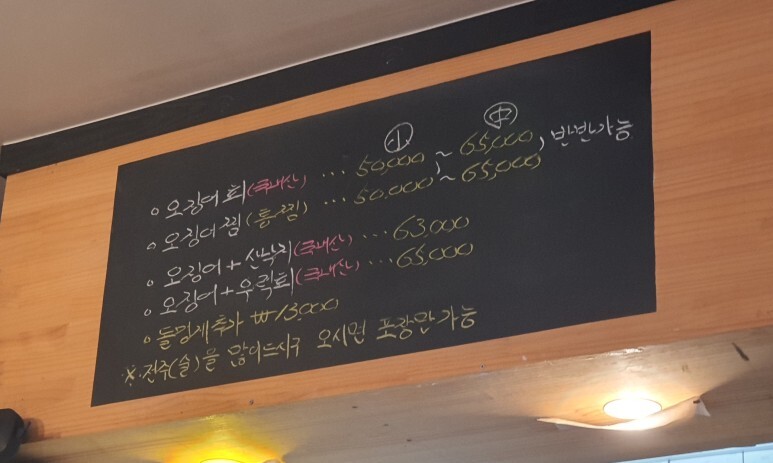 小 中
○ 오징어 회(국내산) ··· 50,000 ~ 65,000, 반반가능
○ 오징어 찜(통찜) ··· 50,000 ~ 65,000
○ 오징어 + 산낙지(국내산) ··· 63,000
○ 오징어 + 우럭회(국내산) ··· 65,000
○ 들깨 추가 ₩13,000
※ 전주(술)을 많이드시구 오시면 포장만가능